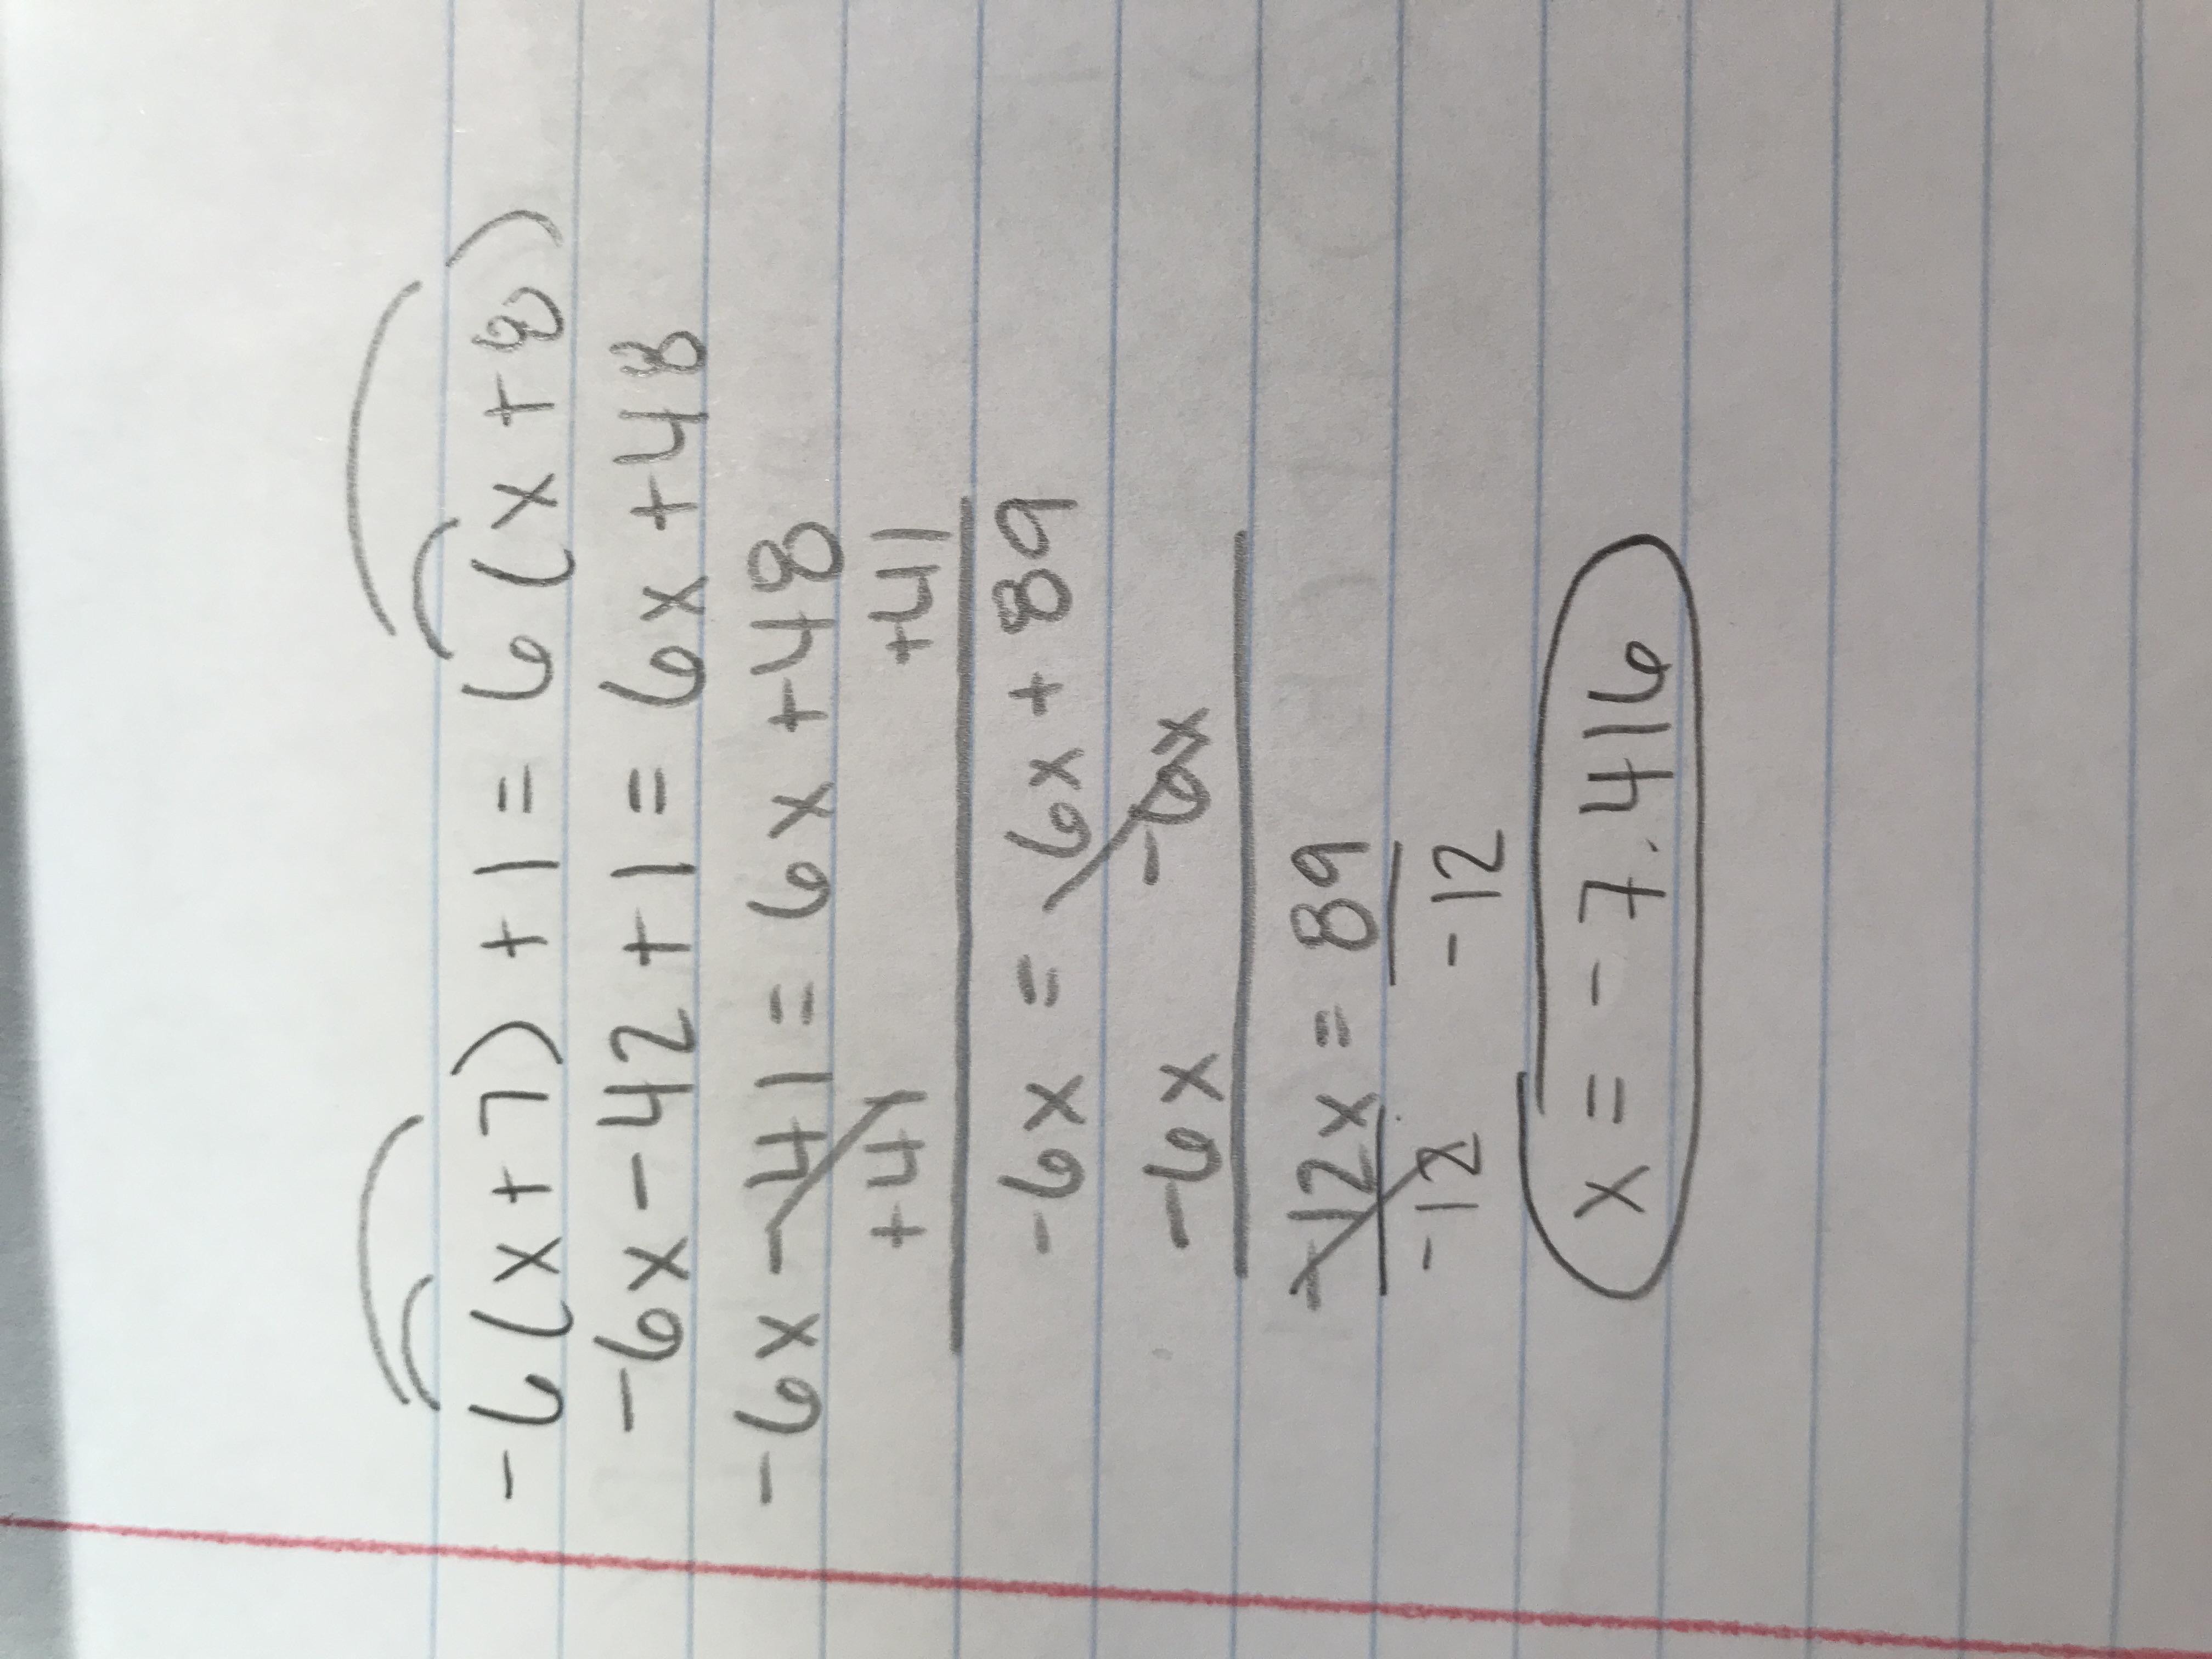 -6(x+7)+1=6(x+8)
-6x-42+1=6x+48
-6x-41=6x+48
+41 +41
-6x=6x+89
-6x -6x
-12x=89
-12 -12
x=-7.416